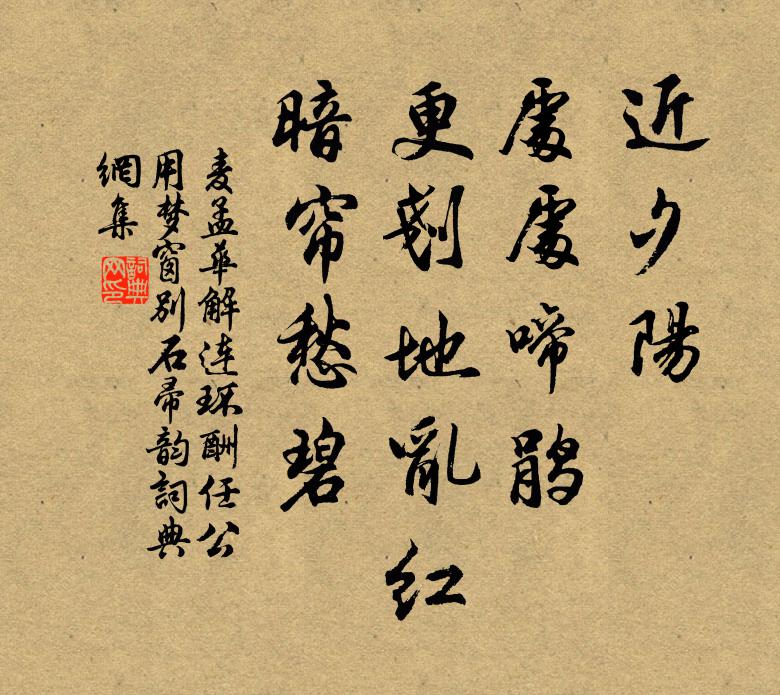 近夕陽
處處啼鵑
更剗地亂紅
暗帘愁碧
麦孟華解連环酬任公
用梦窗別石帚韵詞典
網集
詞典网印